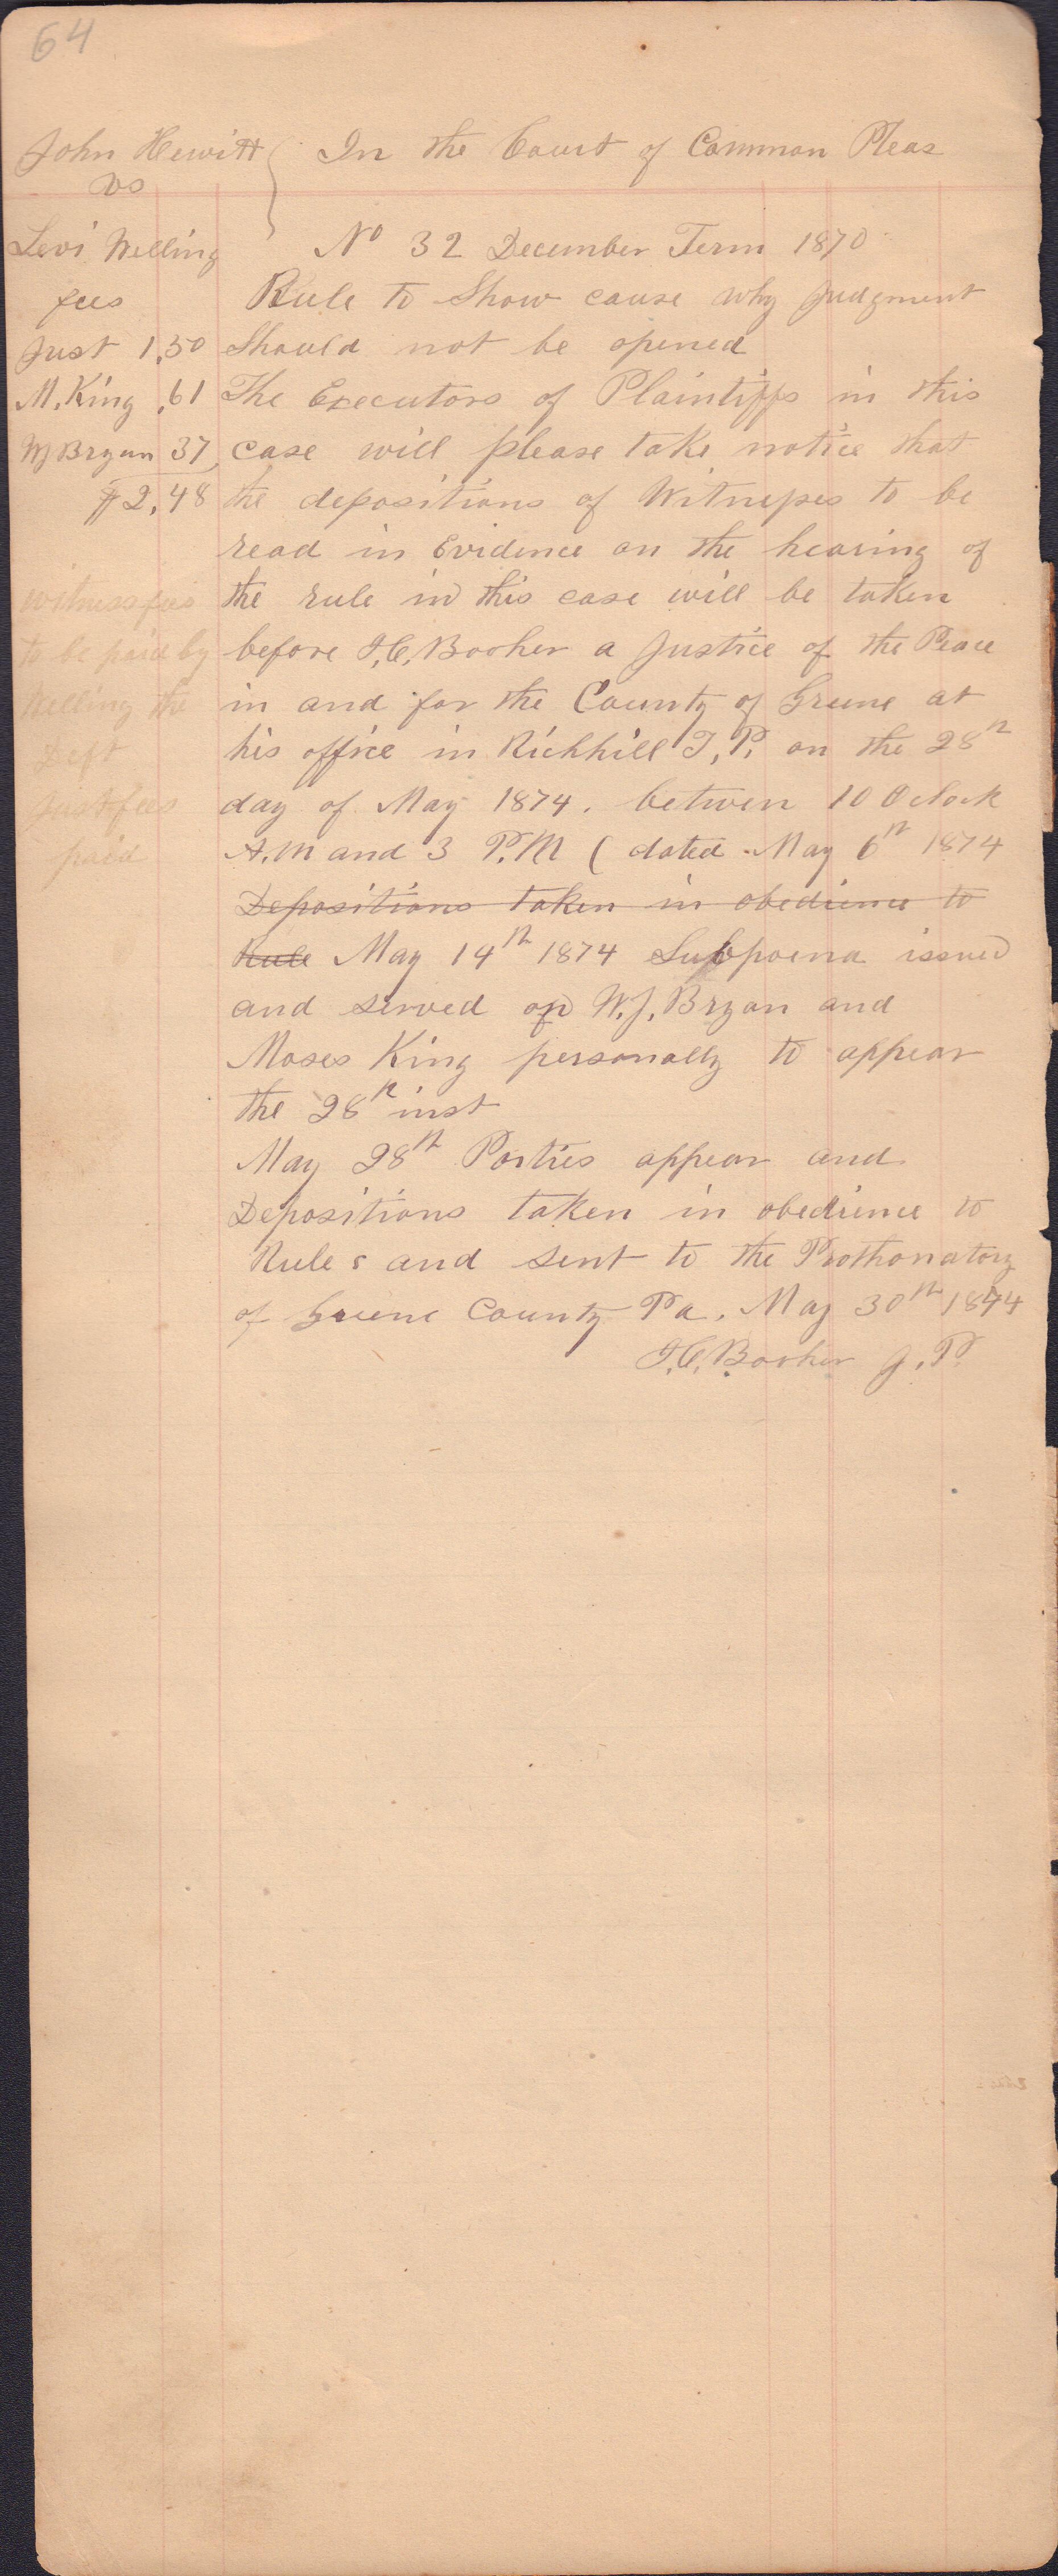 64
John Hewitt { In the Court of Common Pleas
vs
Levi Welling No 32 December Term 1870
fees Rule to Show cause why Judgment
Just 1.50 Should not be opened
M. King .61 The Executors of Plaintiffs in this
WJ Bryan 37 case will please take notice that
$2.48 the depositions of Witnesses to be
read in Evidence on the hearing of
witness fees the rule in this case will be taken
to be paid by before J.C. Booher a Justice of the Peace
Welling the in and for the County of Greene at
Deft his office in Richhill T.P. on the 28th
Just fees day of May 1874. between 10 Oclock
paid A.M and 3 P.M ( dated May 6th 1874
Depositions taken in obedience to
Rule May 14th 1874 Subpoena issued
and served on W.J. Bryan and
Moses King personally to appear
the 28th inst
May 28th Parties appear and
Depositions taken in obedience to
Rule s and sent to the Prothonatory
of Greene County Pa. May 30th 1874
J.C. Booher J.P.